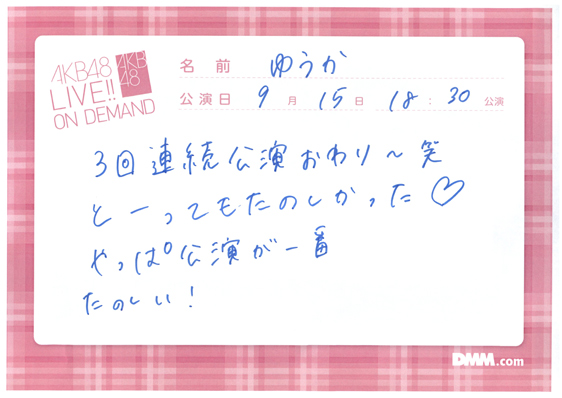 AKB48
LIVE!!
ON DEMAND
AKB
48
名前 ゆうか
公演日 9月15日 18:30公演
3回連続公演おわり～笑
とーってもたのしかった♡
やっぱ公演が一番
たのしい！
DMM.com